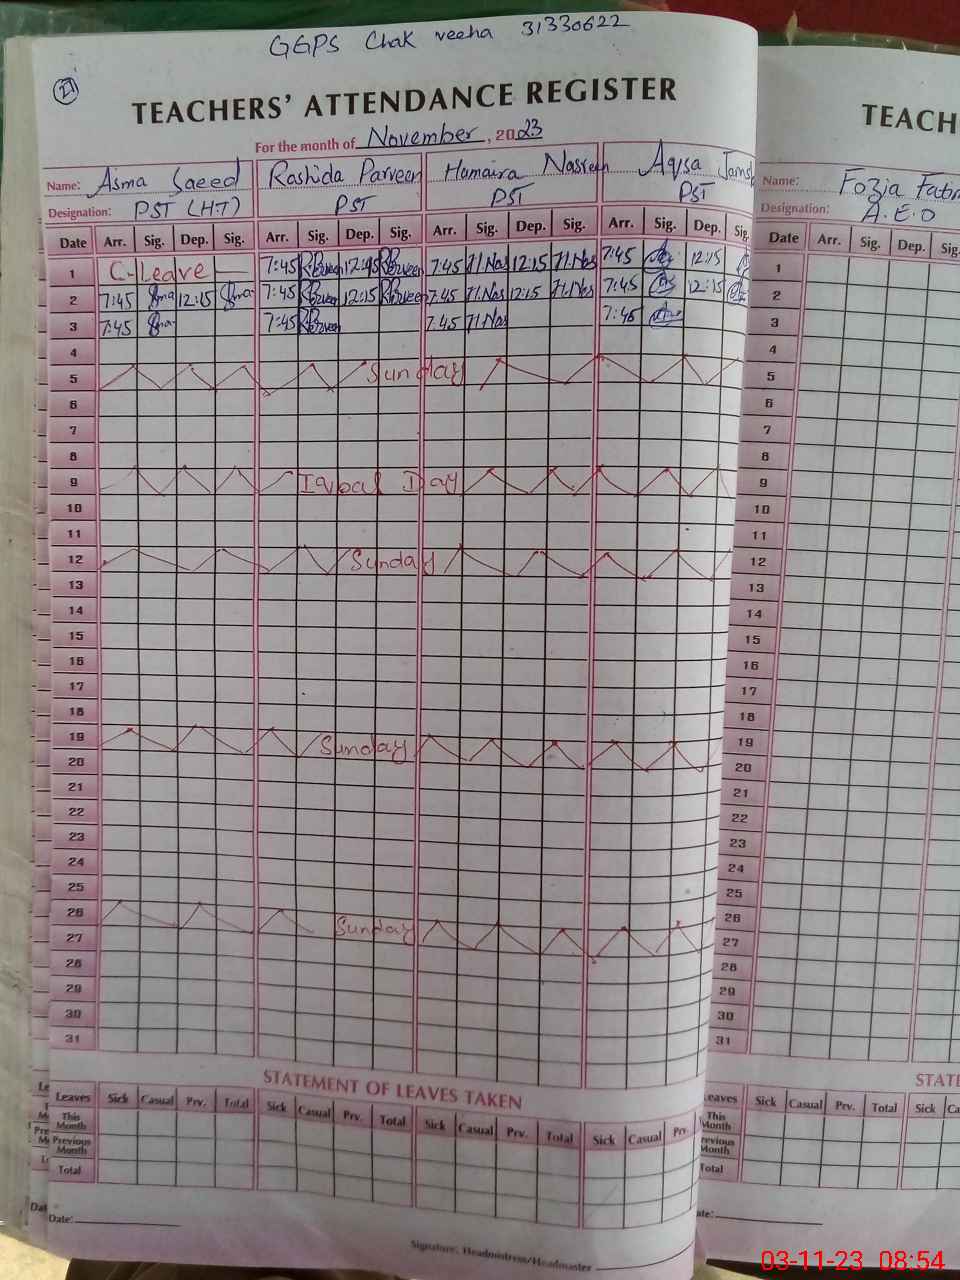 GGPS Chak veeha 31330622
27
TEACHERS' ATTENDANCE REGISTER
For the month of November, 2023
Name: Asma Saeed Rashida Parveen Humaira Nasreen Aqsa
Designation: PST (H.T) PST PST PST
Date Arr. Sig. Dep. Sig. Arr. Sig. Dep. Sig. Arr. Sig. Dep. Sig. Arr. Sig. Dep. Sig.
1 C-Leave 7:45 RParveen 12:15 RParveen 7:45 H.Nas 12:15 H.Nas 7:45 12:15
2 7:45 Asma 12:15 Asma 7:45 RParveen 12:15 RParveen 7:45 H.Nas 12:15 H.Nas 7:45 12:15
3 7:45 Asma 7:45 RParveen 7:45 H.Nas 7:45
4
5 Sunday
6
7
8
9 Iqbal Day
10
11
12 Sunday
13
14
15
16
17
18
19 Sunday
20
21
22
23
24
25
26 Sunday
27
28
29
30
31
STATEMENT OF LEAVES TAKEN
Leaves Sick Casual Prv. Total Sick Casual Prv. Total Sick Casual Prv. Total Sick Casual Prv.
This Month
Previous Month
Total
Date:
Signature: Headmistress/Headmaster
TEACH
Name: Fozia
Designation: A.E.O
Date Arr. Sig. Dep. Sig.
1
2
3
4
5
6
7
8
9
10
11
12
13
14
15
16
17
18
19
20
21
22
23
24
25
26
27
28
29
30
31
STATE
eaves Sick Casual Prv. Total Sick Ca
This Month
revious Month
Total
ate:
03-11-23 08:54